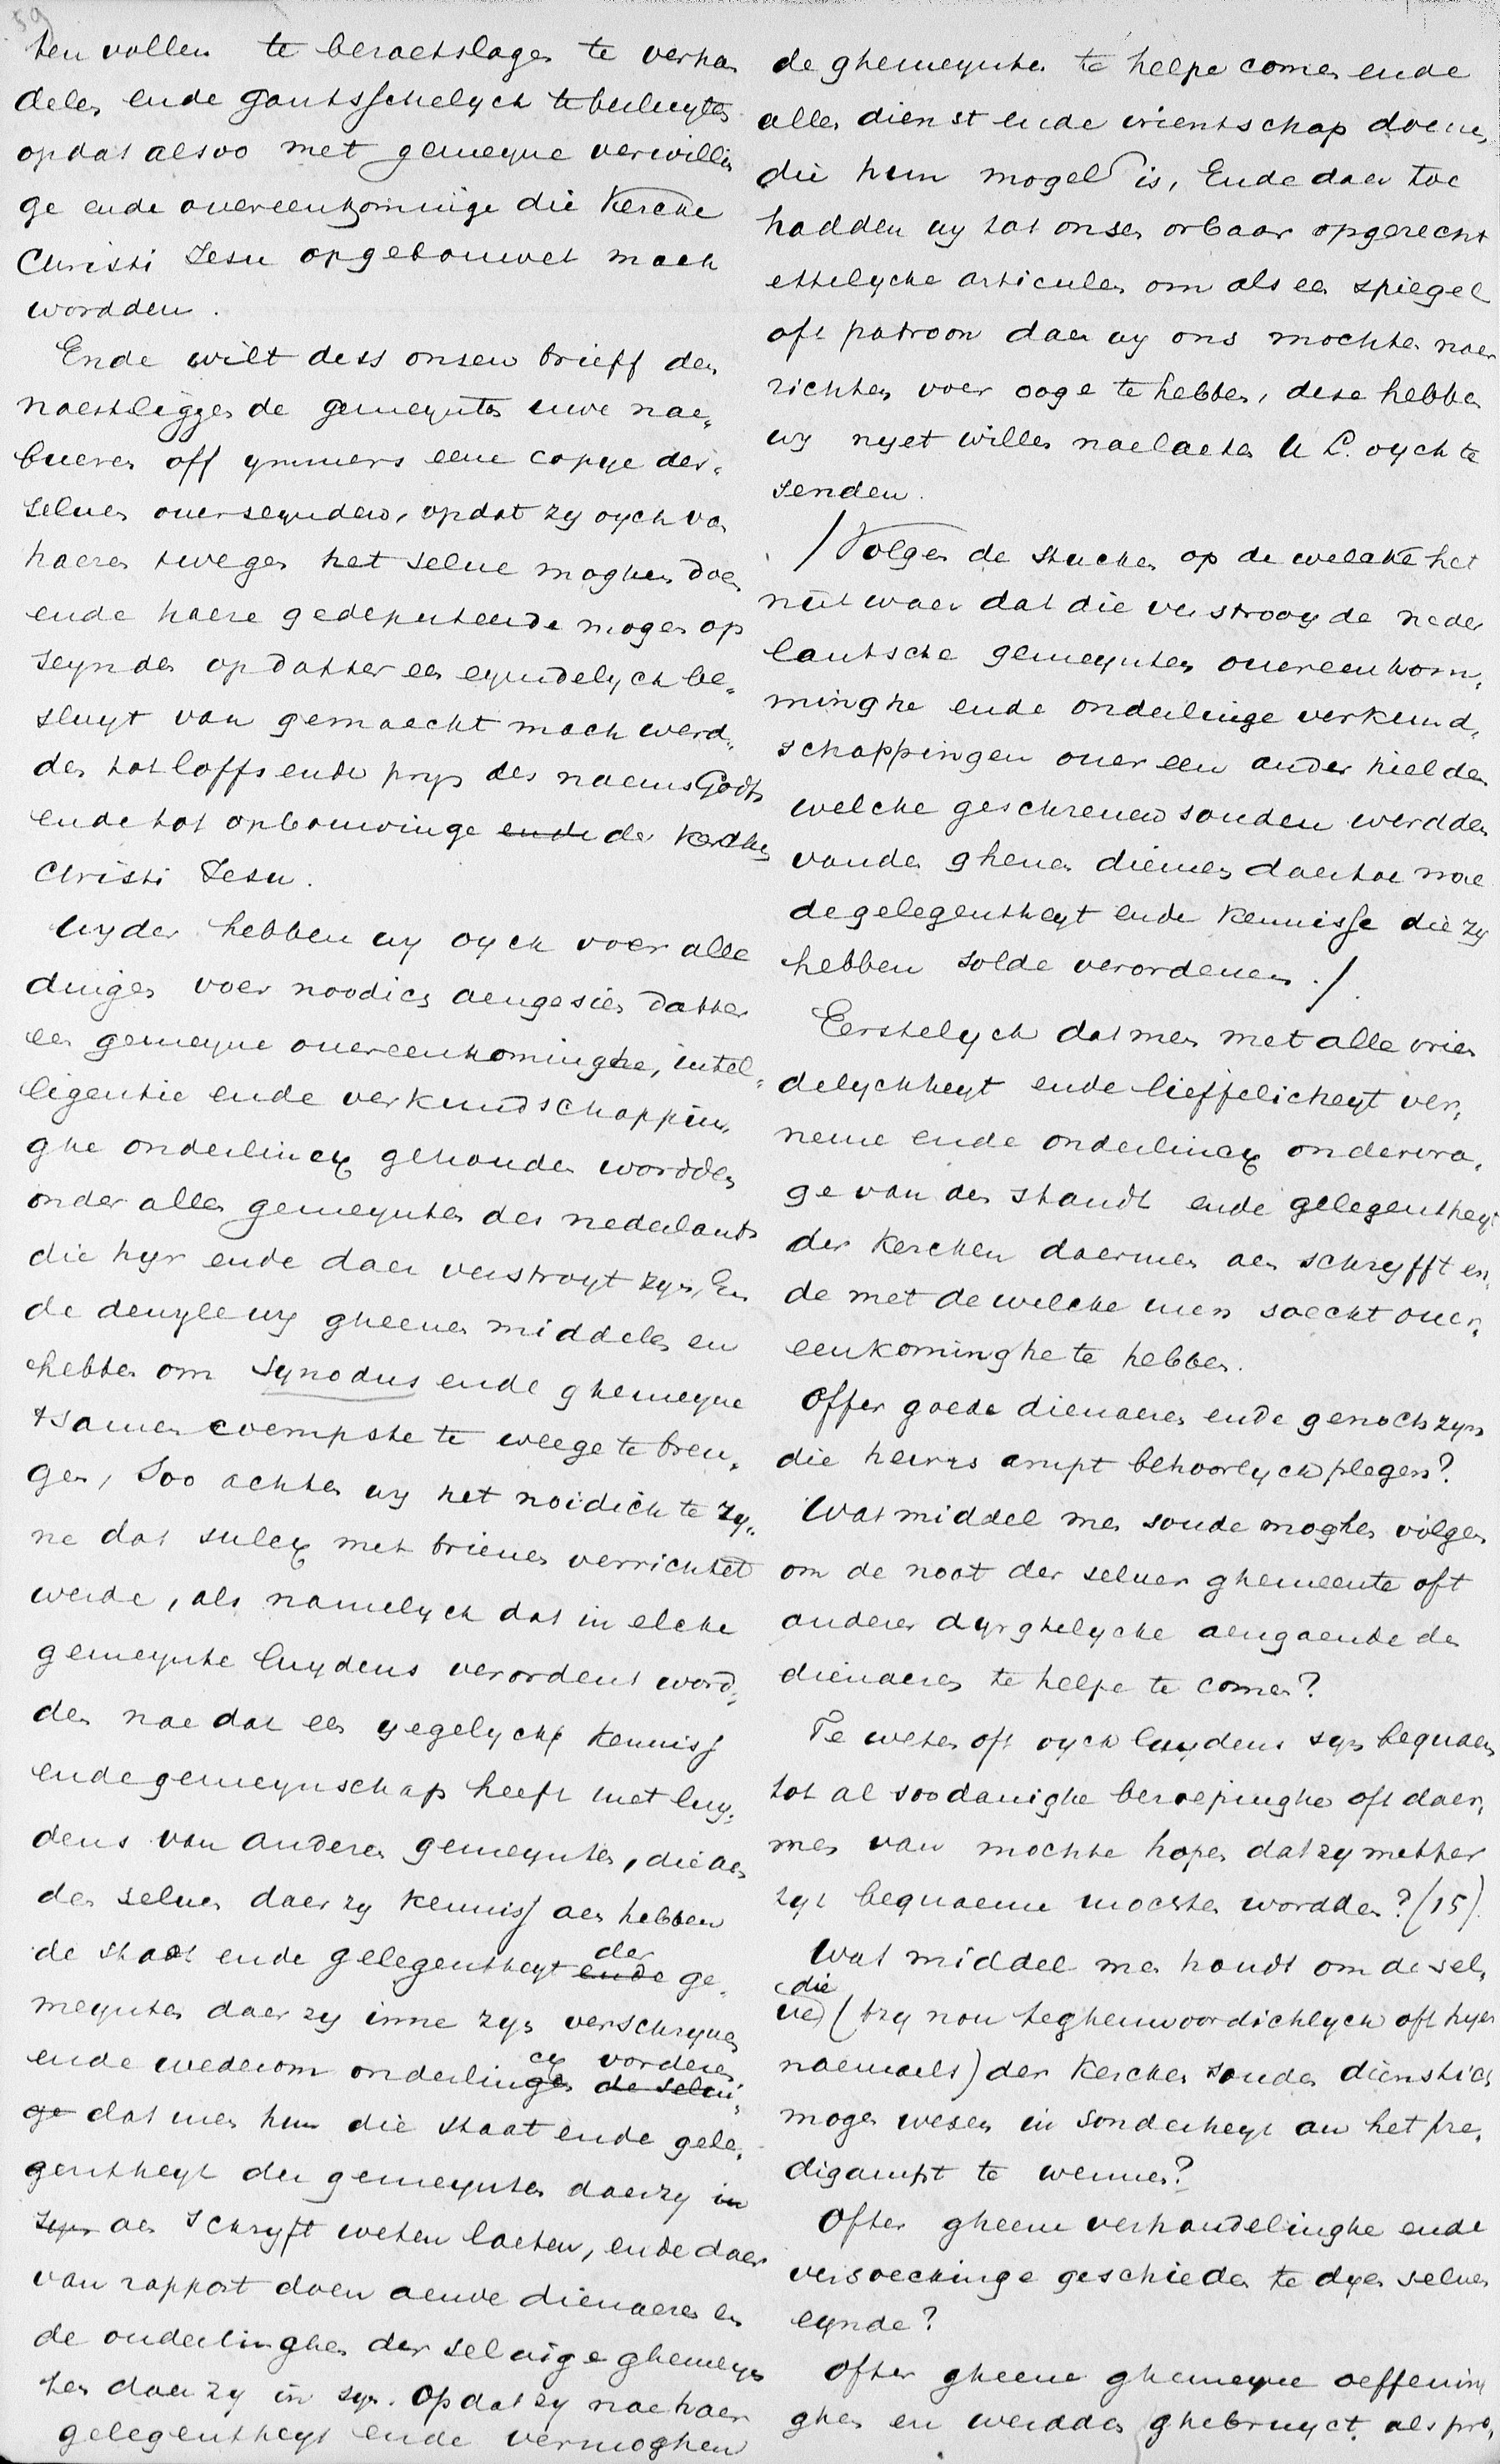 59
ten vollen te beraetslagen te verhan
delen ende gantsschelyck te besluyten
opdat alsoo met gemeyne verwillin
ge ende overeenkominge die Kercke
Christi Jesu opgebouwet mach
wordden.
Ende wilt dess onsen brieff den
naestliggende gemeynten uwe nae„
bueren off ymmers eene copye des„
seluen ouerseynden, opdat zy oyck van
haeren twegen het selue moghen doen
ende haere gedeputeerde mogen op
seynden opdatter een eyndelyck be„
sluyt van gemaeckt mach werd„
den tot loffs ende prys des naems Godts
ende tot opbouwinge ende der Kercken
Christi Jesu.
Wyder hebben wy oyck voer alle
dingen voer noodich aengesien datter
een gemeyne ouereenkominghe, intel„
ligentie ende verkundschappin„
ghe onderlincx gehouden wordden
onder allen gemeynten des nederlants
die hyr ende daer verstroyt zyn, En
de dewyle wy gheene middelen en
hebben om Synodus ende ghemeyne
tsamen coempste te weege te bren„
gen, Soo achten wy het noidich te zy„
ne dat sulcx met brieuen verrichtet
werde, als namelyck dat in elcke
gemeynte luydens verordent word„
den nae dat een yegelyck kenniss
ende gemeynschap heeft met luy„
dens van anderen gemeynten, die aen
den seluen daer zy kenniss aen hebben
de stadt ende gelegentheyt ende der ge„
meynten daer zy inne zyn verschryuen
ende wederom onderlingen cx de selui„ vorderen
ge dat men hun die staat ende gele„
gentheyt der gemeynten daer zy in
syn aen schryft weten laeten, ende daer
van rapport doen aen de dienaeren en
de ouderlinghen der seluige ghemeyn
ten daer zy in syn. Opdat zy nae haer
gelegentheyt ende vermoghen
de ghemeynten te helpe comen ende
allen dienst ende vrientschap doene,
die hun mogel is, Ende daer toe
hadden wy tot onsen orbaar opgerecht
ettelycke articulen om als een spiegel
oft patroon daer wy ons mochten naer
richten voer ooge te hebben, dese hebben
wy nyet willen naelaeten U L. oyck te
senden.
/ Volgen de stucken op de welcke het
nut waer dat die verstroyde neder
lantsche gemeynten ouereenkom„
minghe ende onderlinge verkund„
schappingen ouer een ander hielden
welche geschreuen souden werdden
vanden ghenen diemen daertoe nae
de gelegentheyt ende kennisse die zy
hebben solde verordenen. /.
Eerstelyck dat men met alle vrien
delyckheyt ende lieffelicheyt ver„
neme ende onderlincx ondervra„
ge van den standt ende gelegentheyt
der Kercken daermen aen schryfft en„
de met de welcke men soeckt ouer„
eenkominghe te hebben.
Offer goede dienaeren ende genoch zyn
die heurs ampt behoorlyck plegen?
Wat middel men soude moghen volgen
om de noot der seluer ghemeente oft
anderer dyrghelycke aengaende den
dienaeren te helpe te comen?
Te weten oft oyck luydens syn bequaem
tot al soodanighe beroepinghe oft daer„
men van mochte hopen dat zy metter
zyt bequaeme mochten wordden? (15).
Wat middel men houdt om de sel„
ve die (tzy nou teghenwoordichlyck oft hyer
naemaels) der Kercken souden dienstich
mogen wesen in sonderheyt an het pre„
digampt te wennen?
Ofter gheene verhandelinghe ende
versoeckinge geschieden te dyen seluen
eynde?
Ofter gheene ghemeyne oeffenin
ghen en werdden ghebruyct als pro„